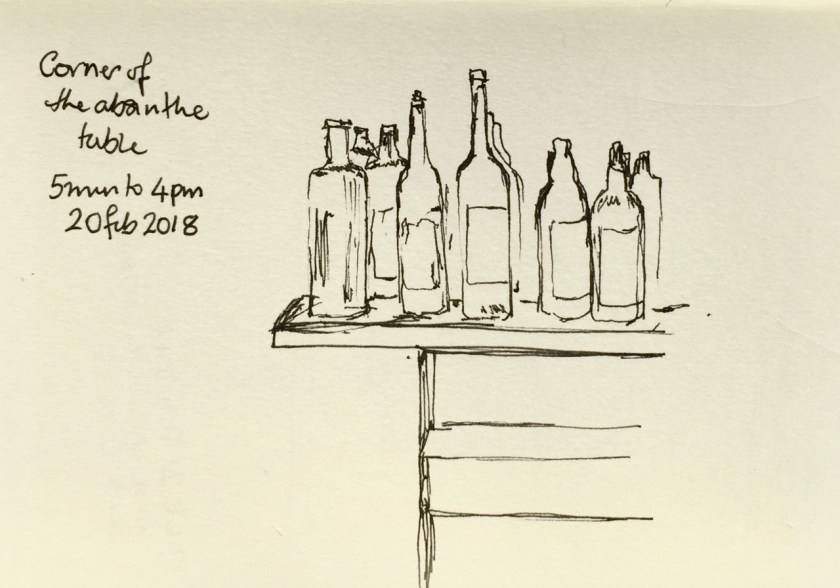 Corner of
the absinthe
table
5min to 4pm
20 feb 2018